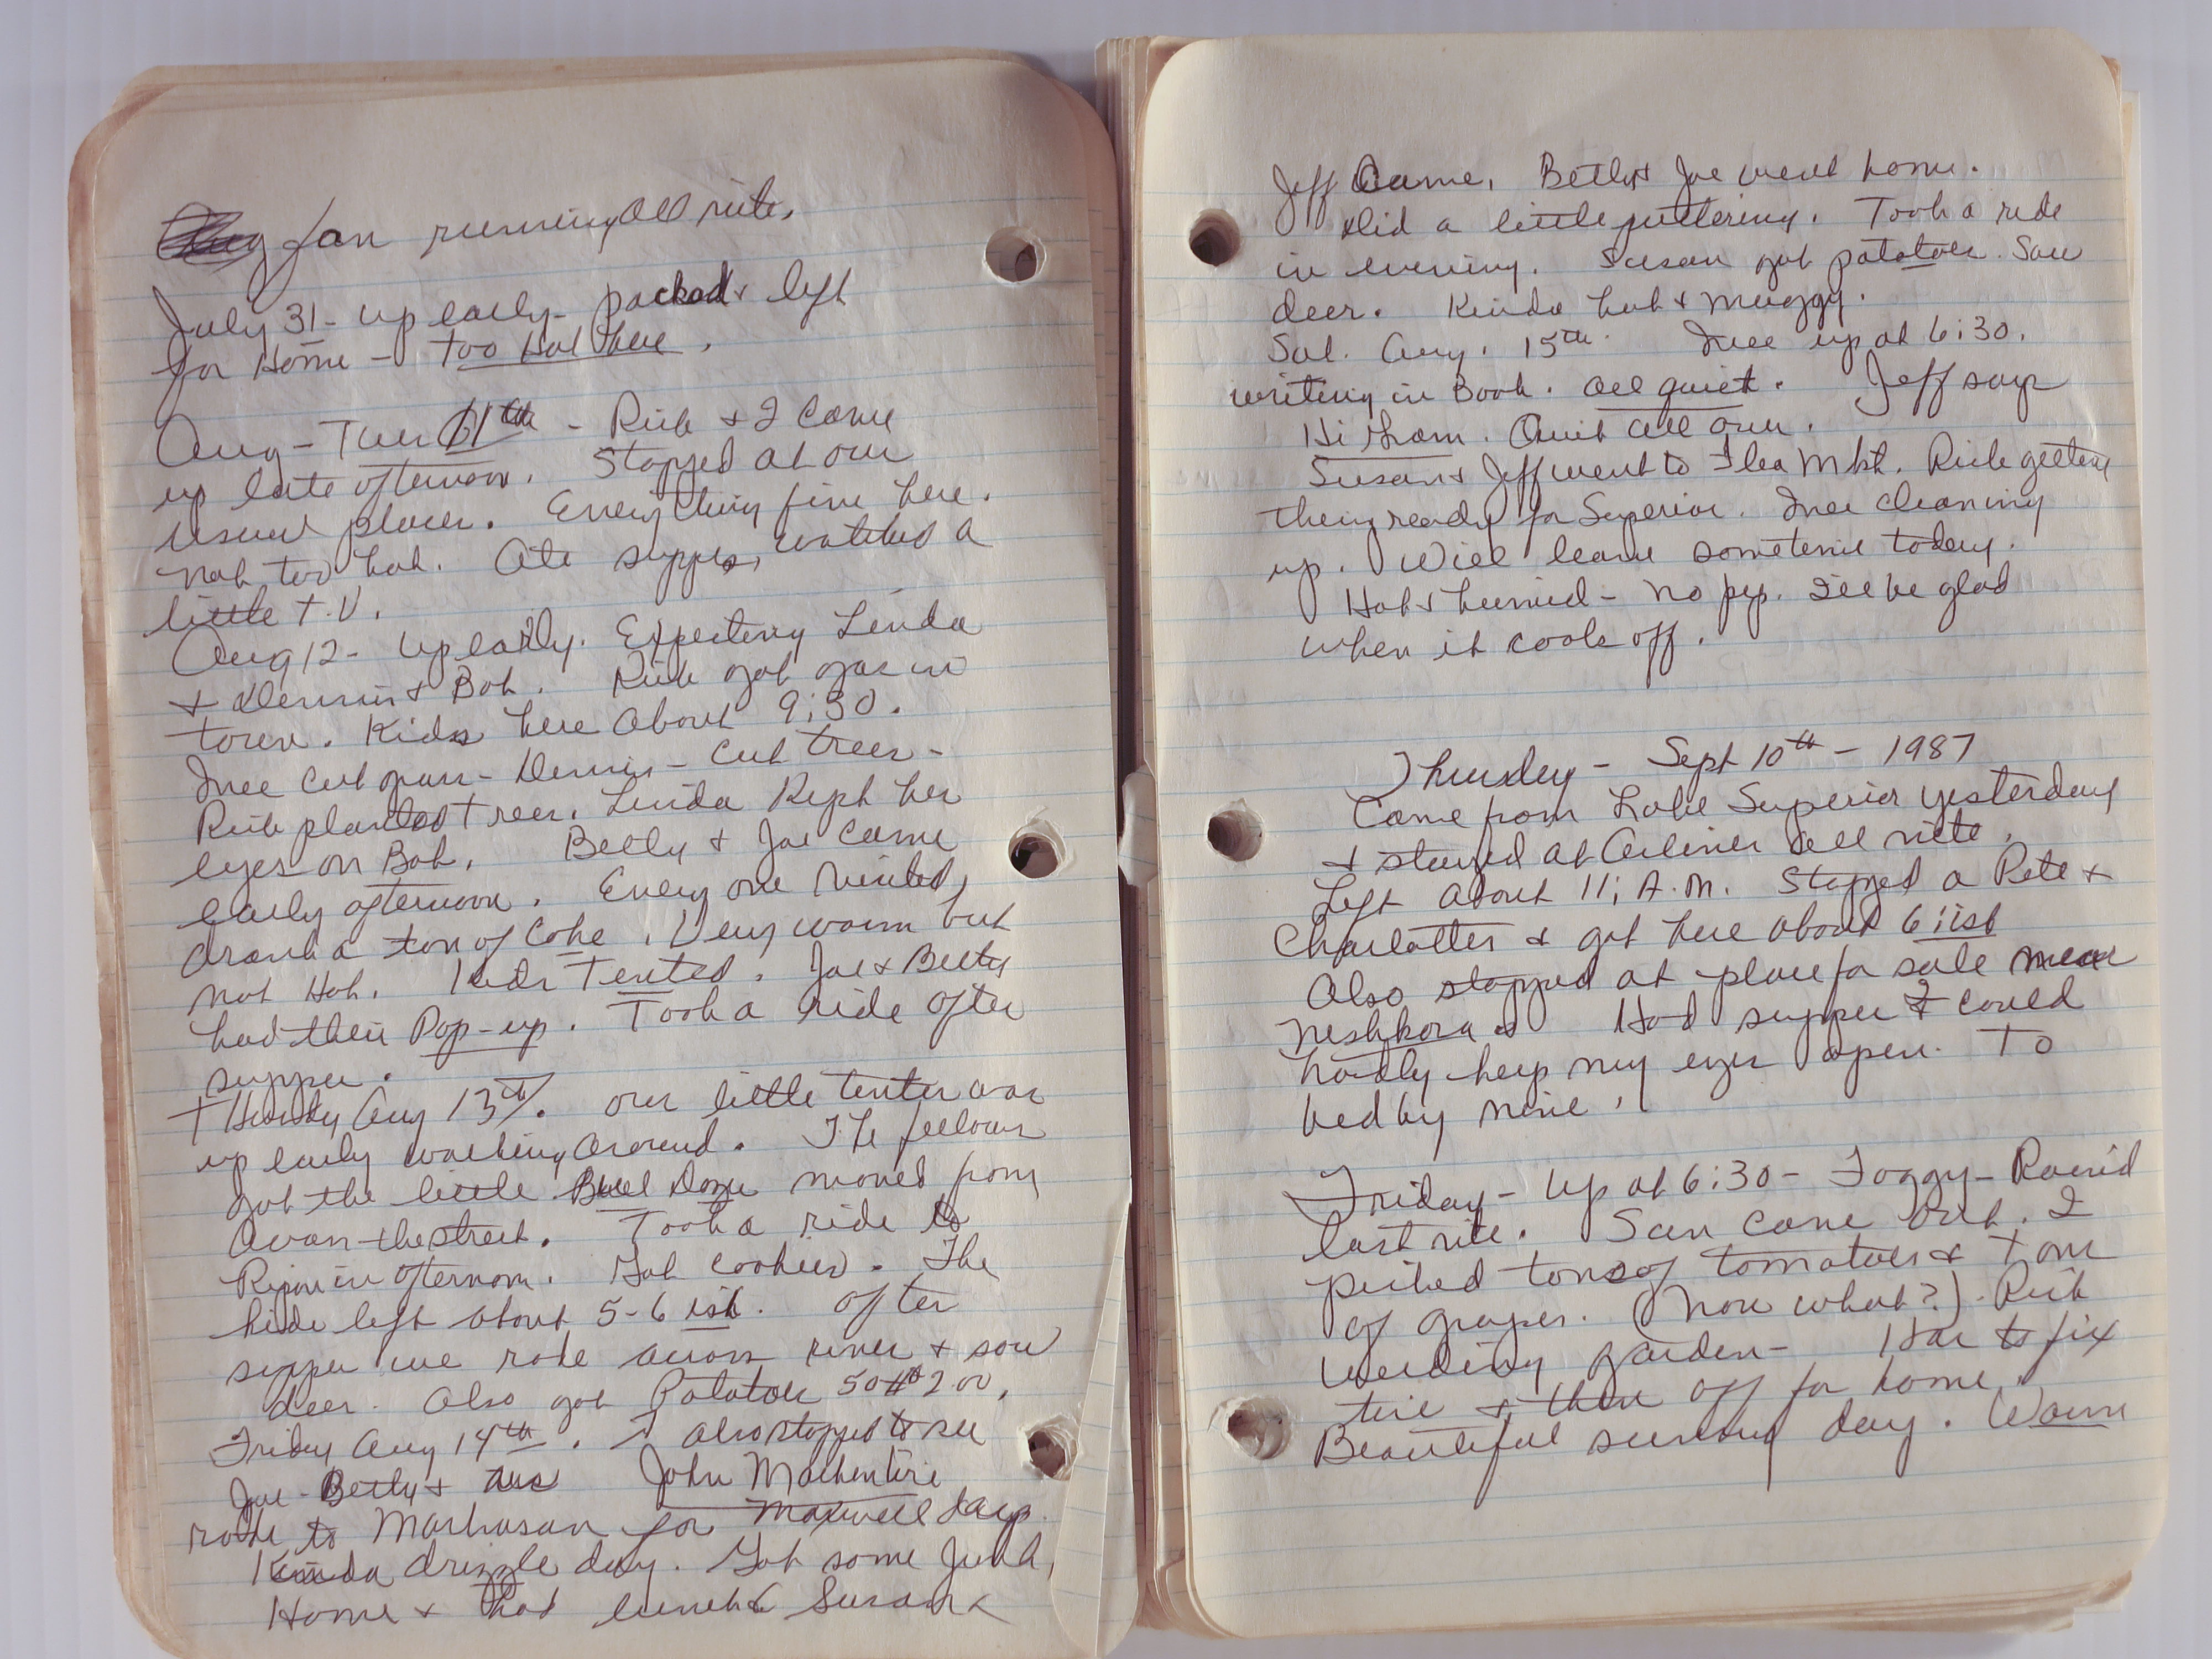 fan running all nite.
July 31 - up early - packed & left
for Home - Too Hot here.
Aug - Tues 11th - Rich & I came
up late afternoon. Stopped at our
usual places. Everything fine here.
Not too hot. Ate supper, watched a
little T.V.
Aug 12 - Up early. Expecting Linda
& Dennis & Bob. Rich got gas in
town. Kids here about 9:30.
Mee cut grass - Dennis - cut trees -
Rich planted trees. Linda Kept her
eyes on Bob. Betty & Joe came
early afternoon. Every one visited,
drank a ton of Coke. Very warm but
not Hot. Kids Tented. Joe & Betty
had their Pop-up. Took a ride after
supper.
Thursday Aug 13th. our little tenter was
up early walking around. The fellows
got the little Bull Doze moved from
across the street. Took a ride to
Ripon in afternoon. Got cookies. The
kids left about 5-6 ish. after
supper we rode across river & saw
deer. Also got Potatoes 50# 2.00.
Friday Aug 14th. & also stopped to see
Joe - Betty & us John Mackentire
rode to Markesan for Maxwell days.
Kinda drizzle day. Got some Junk.
Home & had lunch & Susan &
Jeff Came. Betty & Joe went home.
Did a little puttering. Took a ride
in evening. Susan got potatoes. Saw
deer. Kinda hot & muggy.
Sat. Aug. 15th. Mee up at 6:30.
writing in Book. All quiet. Jeff says
Hi there. Quiet all over.
Susan & Jeff went to Flea Mkt. Rich getting
things ready for Superior. Mee cleaning
up. Will leave sometime today.
Hot & humid - no pep. I'll be glad
when it cools off.
Thursday - Sept 10th - 1987
Came from Lake Superior yesterday
& stayed at Arlines all nite.
Left about 11: A.M. Stopped a Pete &
Charlottes & got here about 6:ish
Also stopped at place for sale near
Neshkora. Had supper & could
hardly keep my eyes open. To
bed by nine!
Friday - Up at 6:30 - Foggy - Rained
last nite. Sun came out. I
picked tons of tomatoes & tons
of grapes. (Now what?) Rich
weeding garden - Has to fix
tire & then off for home.
Beautiful sunny day. Warm